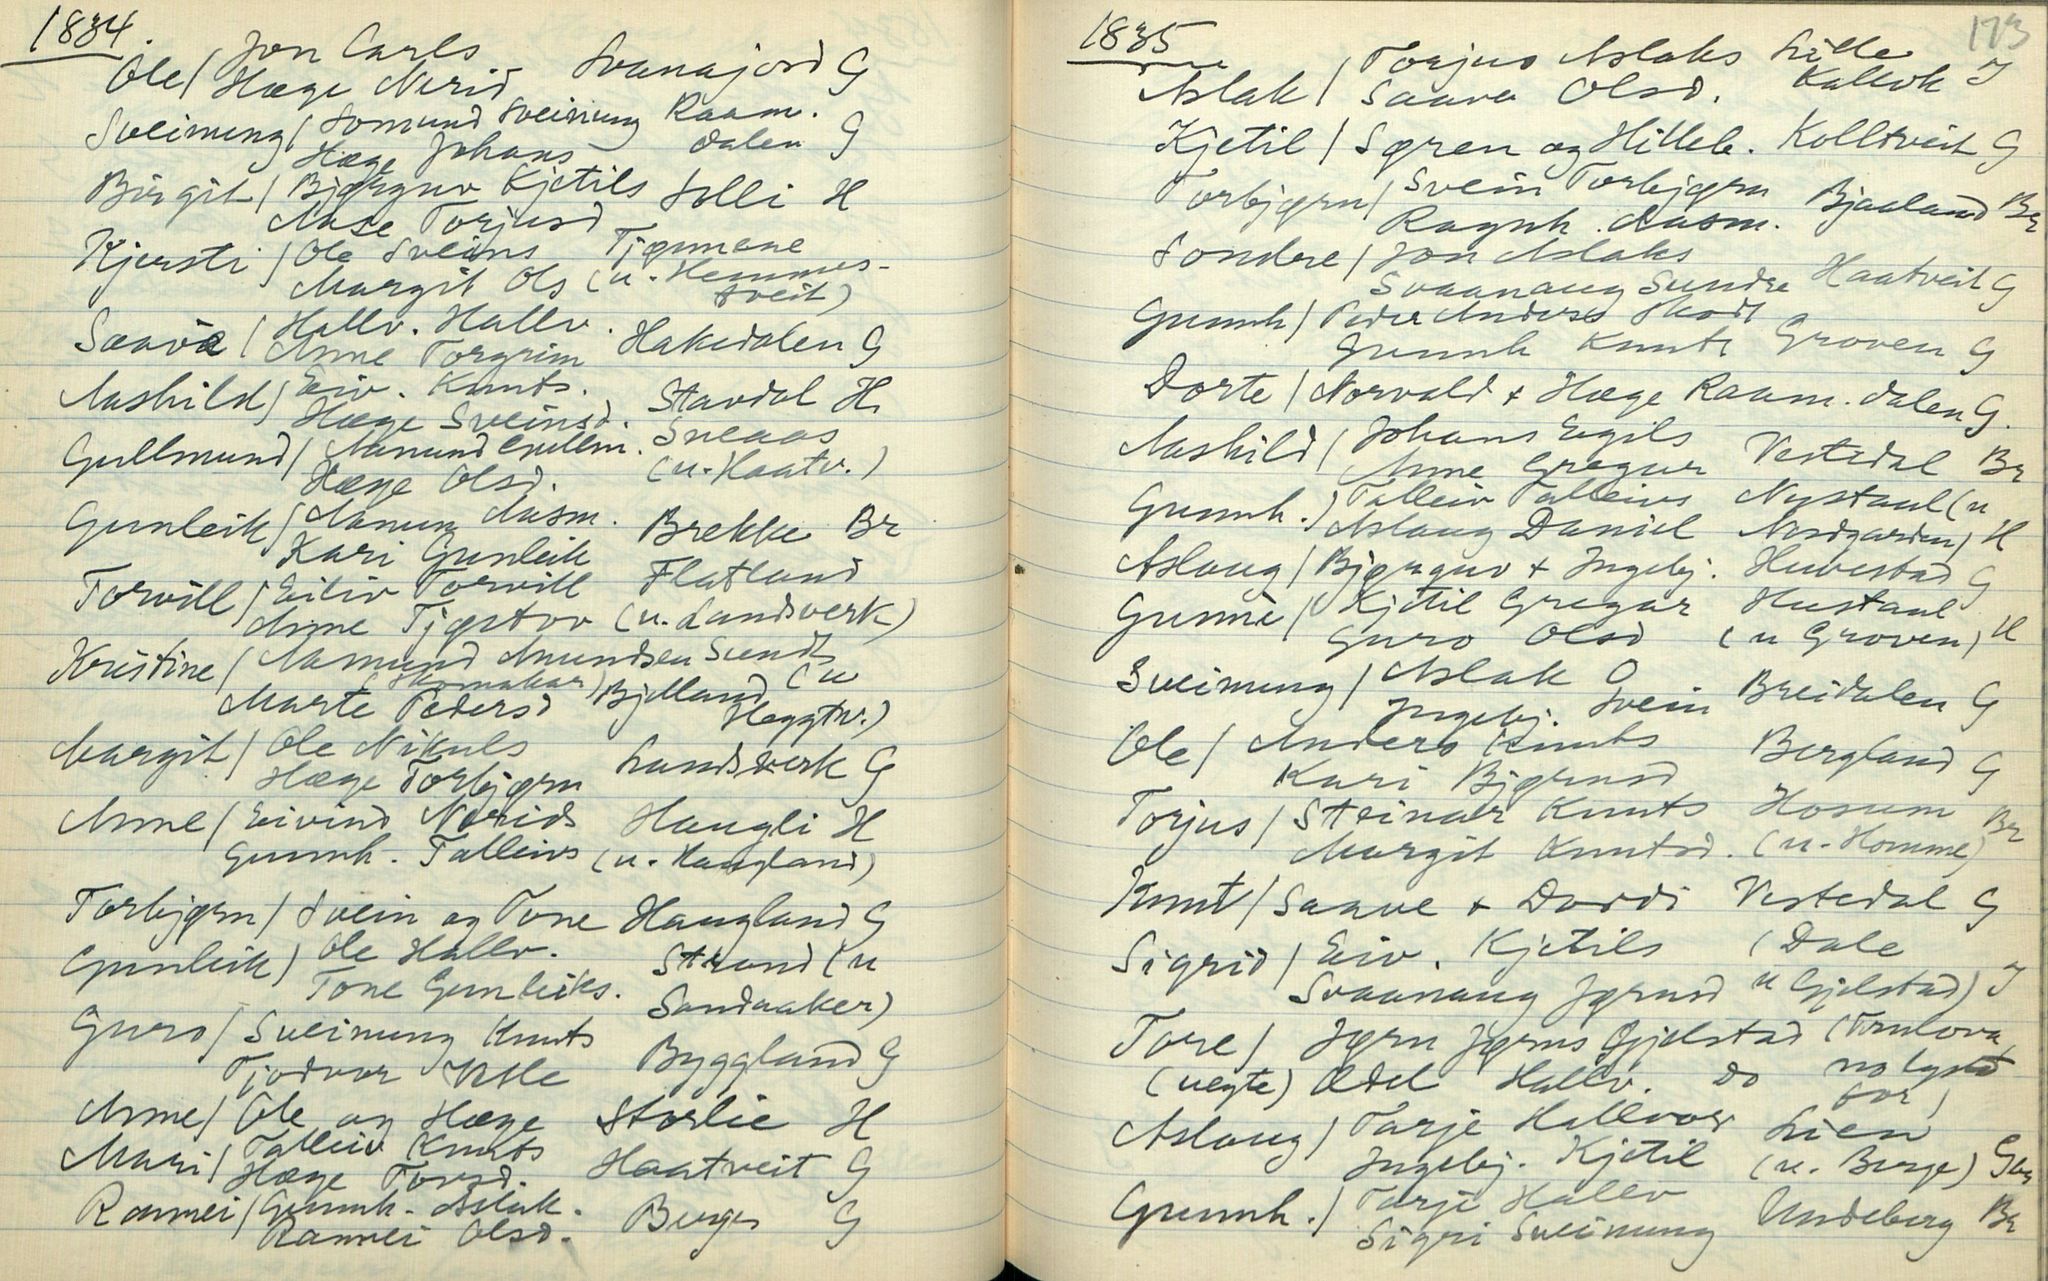 1834.
Jon Carls
Ole / Hæge Nerid Svanajord G
Sveinung / Somund Sveinung Raam-
Hæge Johans dalen G
Birgit / Bjørguv Kjetils Solli H
Aase Torjusd
Kjersti / Ole Sveins Tjønnane
Margit Ols (u. Hemmes-
tveit)
Saave / Hallv. Hallv.
Anne Torgrim Hakedalen G
Aashild / Eiv. Knuts. Stavdal H.
Hæge Sveinsd.
Gullmund / Aamund Gullm. Sneaas
Hæge Olsd. (u. Haatv.)
Gunleik / Aamun Aasm. Brekke Br
Kari Gunleik
Torvill / Eiliv Torvill Flatland
Anne Tjøstov (u. Landsverk)
Kristine / Aamund Amundsen Sundt
(Skomakar) (u
Marte Pedersd Bjelland Heggtv.)
Margit / Ole Nikuls
Hæge Torbjørn Landsverk G
Anne / Eivind Nerids Haugli H
Gunnh. Talleivs (u. Haugland)
Torbjørn / Svein og Tone Haugland G
Gunleik / Ole Hallv. Strand (u
Tone Gunleiks. Sandaaker)
Guro / Sveinung Knuts
Tjodvor Vetle Byggland G
Anne / Ole og Hæge Storlie H
Mari / Talleiv Knuts
Hæge Torsd. Haatveit G
Ramnei / Gunnh. Aslak.
Ramnei Olsd. Berge G
1835 173
Torjus Aslaks Lille
Aslak / Saave Olsd. Kallok J
Kjetil / Søren og Hilleb. Kolltveit G
Torbjørn / Svein Torbjørn Bjaaland Br
Ragnh. Aasm.
Sondre / Jon Aslaks
Svaanaug Sundre Haatveit G
Gunnh / Peder Anders Skodt
Gunnh Knuts Groven G
Dorte / Norvald + Hæge Raam.dalen G.
Aashild / Johans Egils
Anne Gregar Vestedal Br
Gunnh. / Talleiv Talleivs Nystaul (u
Aslaug Daniel Nordgarden) H
Aslaug / Bjørguv + Ingebj. Huvestad G
Gunne / Kjetil Gregar Hustaul
Guro Olsd (u Groven) H
Sveinung / Aslak O
Ingebj. Svein Breidalen G
Ole / Anders Knuts Bergland G
Kari Bjørnsd
Torjus / Steinar Knuts Hosum Br
Margit Knutsd. (u. Homme)
Knut / Saave + Dordi Vestedal G
Sigrid / Eiv. Kjetils (Dale
Svaanaug Jørnsd u Gjelstad) J
Tore / Jørn Jørns Gjelstad (Trulova
(uegte) Ædel Hallv. do no lyst
for)
Aslaug / Tarje Hallvor Lien
Ingebj. Kjetil (u. Berge) Gr
Gunnh. / Tarje Hallv
Sigri Sveinung Undeberg Br